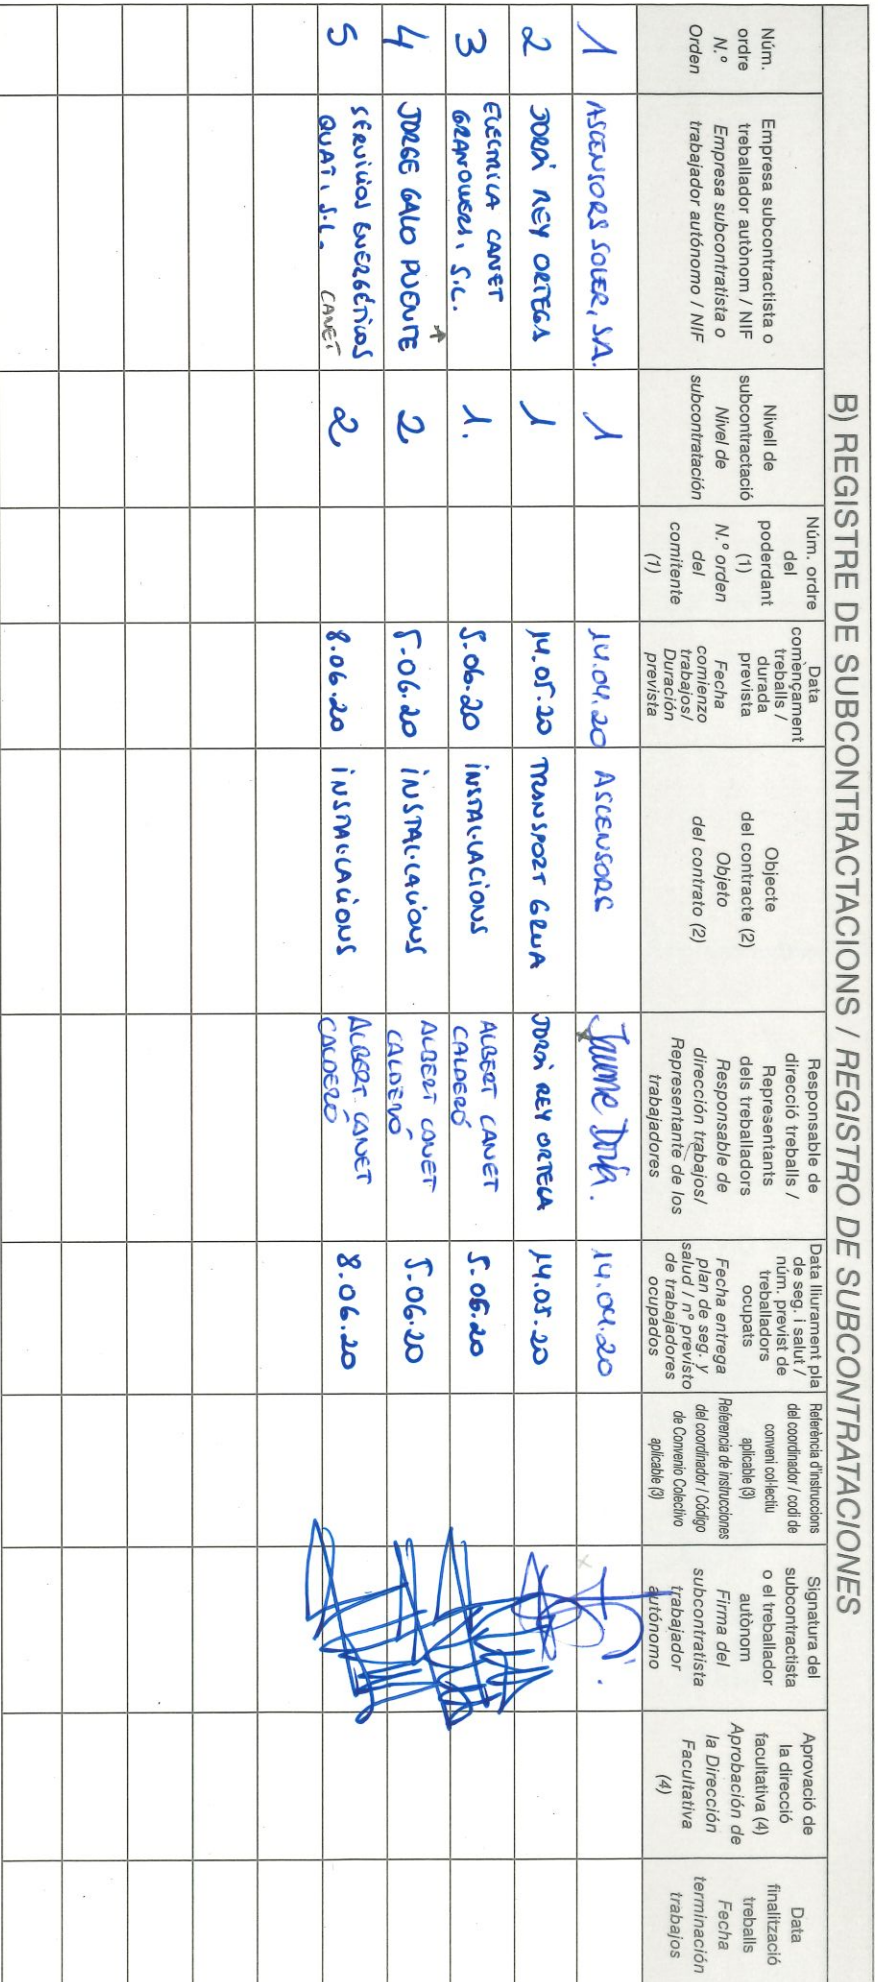 B) REGISTRE DE SUBCONTRACTACIONS / REGISTRO DE SUBCONTRATACIONES
Núm.
ordre
N.º
Orden
Empresa subcontractista o
treballador autònom / NIF
Empresa subcontratista o
trabajador autónomo / NIF
Nivell de
subcontractació
Nivel de
subcontratación
Núm. ordre
del
poderdant
(1)
N.º orden
del
comitente
(1)
Data
començament
treballs /
durada
prevista
Fecha
comienzo
trabajos/
Duración
prevista
Objecte
del contracte (2)
Objeto
del contrato (2)
Responsable de
direcció treballs /
Representants
dels treballadors
Responsable de
dirección trabajos/
Representante de los
trabajadores
Data lliurament pla
de seg. i salut /
núm. previst de
treballadors
ocupats
Fecha entrega
plan de seg. y
salud / nº previsto
de trabajadores
ocupados
Referència d'instruccions
del coordinador / codi de
conveni col·lectiu
aplicable (3)
Referencia de instrucciones
del coordinador / Código
de Convenio Colectivo
aplicable (3)
Signatura del
subcontractista
o el treballador
autònom
Firma del
subcontratista
trabajador
autónomo
Aprovació de
la direcció
facultativa (4)
Aprobación de
la Dirección
Facultativa
(4)
Data
finalització
treballs
Fecha
terminación
trabajos
1 ASCENSORS SOLER, SA. 1 14.04.20 ASCENSORS Jaume 14.04.20
2 JORDI REY ORTEGA 1 14.05.20 TRANSPORT GRUA JORDI REY ORTEGA 14.05.20
3 ELECTRICA CANET
GRANOLLERS, S.L. 1. 5.06.20 INSTAL·LACIONS ALBERT CANET
CALDERÓ 5.06.20
4 JORGE GALO PUENTE 2 5.06.20 INSTAL·LACIONS ALBERT CANET
CALDERÓ 5.06.20
5 SERVICIOS ENERGÉTICOS
QUATI, S.L. CANET 2 8.06.20 INSTAL·LACIONS ALBERT CANET
CALDERO 8.06.20